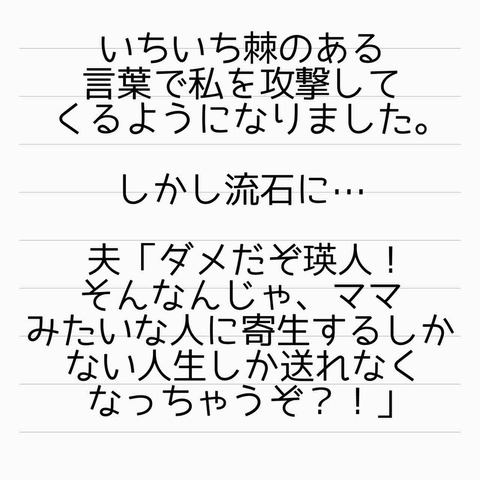 いちいち棘のある
言葉で私を攻撃して
くるようになりました。
しかし流石に…
夫「ダメだぞ瑛人！
そんなんじゃ、ママ
みたいな人に寄生するしか
ない人生しか送れなく
なっちゃうぞ？！」